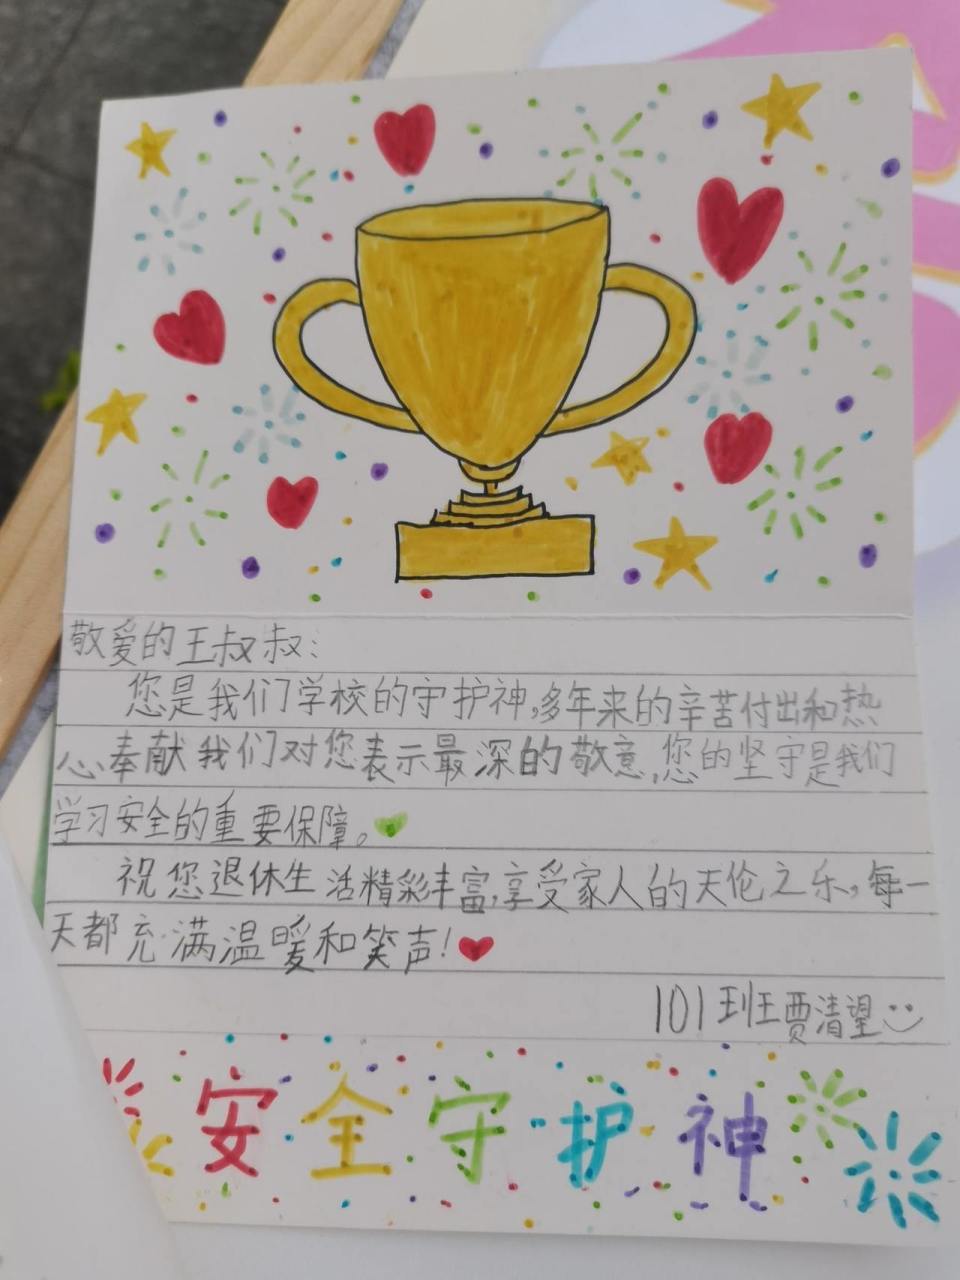 敬爱的王叔叔：
您是我们学校的守护神,多年来的辛苦付出和热
心奉献我们对您表示最深的敬意,您的坚守是我们
学习安全的重要保障。
祝您退休生活精彩丰富,享受家人的天伦之乐,每一
天都充满温暖和笑声!
101班贾清望
安全守护神